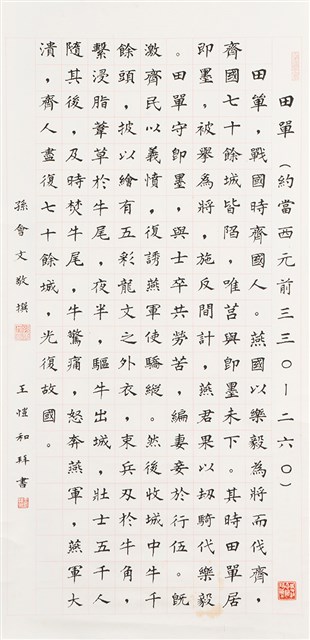 田單(約當西元前三三〇—二六〇)
田單,戰國時齊國人。燕國以樂毅為將而伐齊,
齊國七十餘城皆陷,唯莒與即墨未下。其時田單居
即墨,被舉為將,施反間計,燕君果以刼騎代樂毅
。田單守即墨,與士卒共勞苦,編妻妾於行伍。既
激齊民以義憤,復誘燕軍使驕縱。然後收城中牛千
餘頭,披以繪有五彩龍文之外衣,束兵刃於牛角,
繫浸脂葦草於牛尾,夜半,驅牛出城,壯士五千人
隨其後,及時焚牛尾,牛驚痛,怒奔燕軍,燕軍大
潰,齊人盡復七十餘城,光復故國。
孫會文敬撰 王愷和拜書